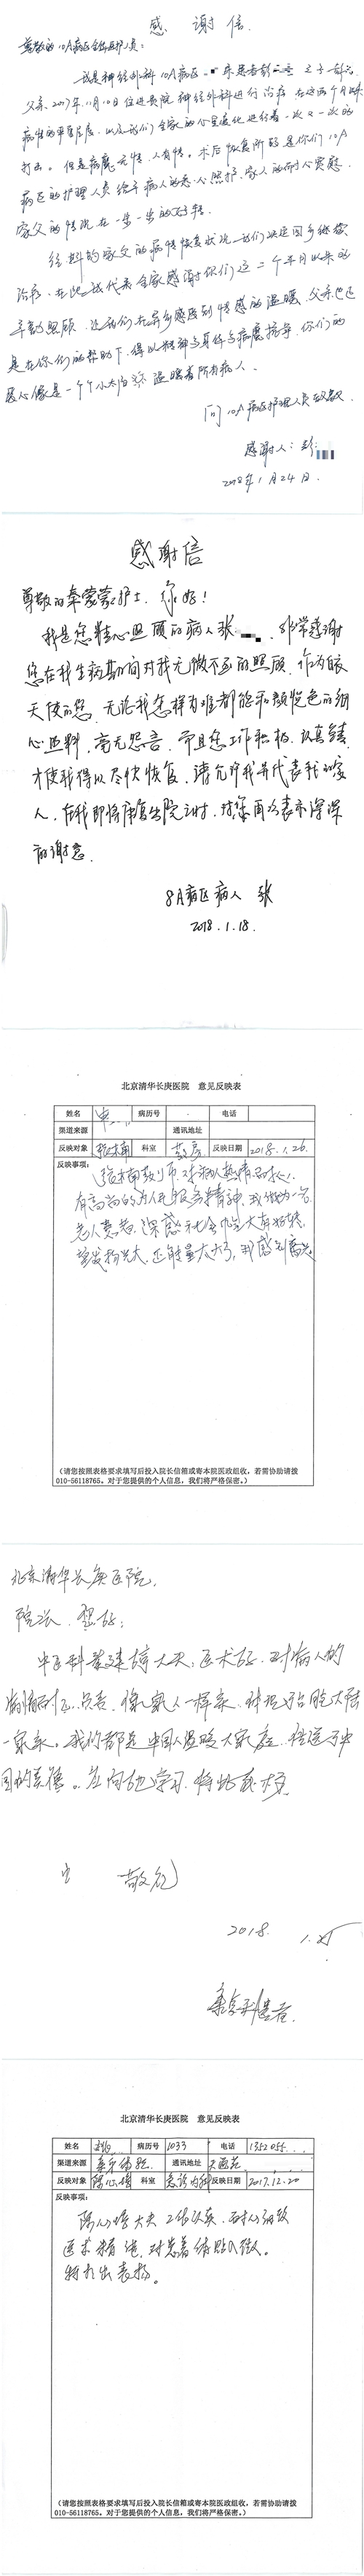 感谢信
尊敬的10A病区全体医护人员：
我是神经外科10A病区 床患者彭 之子彭
父亲2017年11月10日住进贵院神经外科进行治疗，在这两个月时
病情的平复反应，以及我们全家的心里变化进行着一次又一次的
打击。但是病魔无情，人有情。术后恢复阶段是你们10A
病区的护理人员给予病人的悉心照护，家人的耐心宽慰，
家父的情况在一步一步的好转。
经 家父的病情恢复状况，我们决定回乡继续
治疗，在此，我代表全家感谢你们这二个半月以来的
辛勤照顾，让我们在异乡感受到情感的温暖，父亲也还
是在你们的帮助下，得以精神与身体与病魔抗争，你们的
爱心像是一个个小太阳 温暖着所有病人。
向10A病区护理人员致敬
感谢人：彭
2018年1月24日
感谢信
尊敬的秦蒙蒙护士，你好！
我是您精心照顾的病人张 ，非常感谢
您在我生病期间对我无微不至的照顾，作为白衣
天使的您，无论我怎样为难都能和颜悦色的细
心照料，毫无怨言，而且您工作积极，认真负责
才使我得以尽快恢复，请允许我并代表我的家
人，在我即将康复出院之时，对您再次表示深深
的谢意。
8A病区 病人 张
2018.1.18.
北京清华长庚医院 意见反映表
姓名 申 病历号 电话
渠道来源 通讯地址
反映对象 科室 药房 反映日期 2018.1.26.
反映事项：
对病人热情 耐心
有高尚的为人民服务精神，我做为一名
老人患者，深感社会 大有好转，
发扬光大，正能量太大了，我感到高兴。
（请您按照表格要求填写后投入院长信箱或寄本院医政组收，若需协助请拨
010-56118765。对于您提供的个人信息，我们将严格保密。）
北京清华长庚医院，
院长，您好：
中医科黄建婷大夫，医术好，对病人的
病情耐心负责，像家人一样亲，
一家亲。我们都是中国人温暖大家庭，
国的美德。应向她学习，特此表扬
敬礼
2018. 1.25
患者
北京清华长庚医院 意见反映表
姓名 病历号 1033 电话 1352055
渠道来源 通讯地址
反映对象 陈心 科室 急诊内科 反映日期 2017.12.20
反映事项：
陈心 大夫 工作认真，耐心细致
医术精湛，对患者体贴入微。
特提出表扬。
（请您按照表格要求填写后投入院长信箱或寄本院医政组收，若需协助请拨
010-56118765。对于您提供的个人信息，我们将严格保密。）